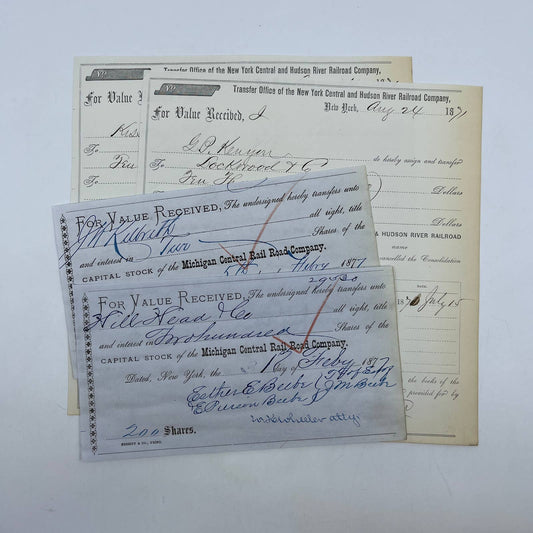 Transfer Office of the New York Central and Hudson River Railroad Company,
For Value R
To
To
Transfer Office of the New York Central and Hudson River Railroad Company,
No
New York, Aug 24 1871
For Value Received, I
J. P. Kenyon
do hereby assign and transfer
To Lockwood & Co
To Ten
Dollars
Dollars
& HUDSON RIVER RAILROAD
name
cancelled the Consolidation
DATE.
187 July 15
the books of the
provided for by
FOR VALUE RECEIVED, The undersigned hereby transfers unto
all right, title
and interest in Two Shares of the
CAPITAL STOCK of the Michigan Central Rail Road Company.
Febry 1877
FOR VALUE RECEIVED, The undersigned hereby transfers unto
Hill Head & Co all right, title
and interest in Two hundred Shares of the
CAPITAL STOCK of the Michigan Central Rail Road Company.
Dated, New York, the day of Feby 1877
Esther E Beebe
E Pierson Beebe J M Beebe
Wheeler atty
200 Shares.